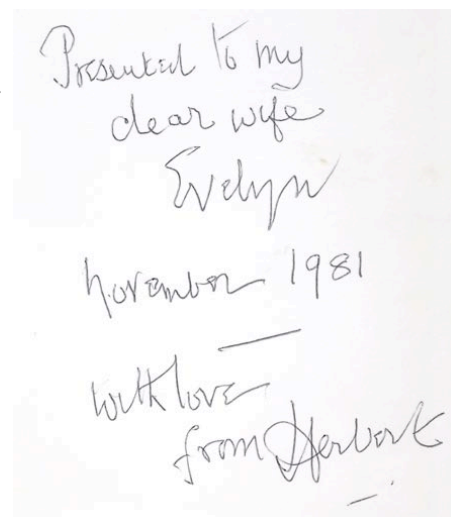 Presented to my
dear wife
Evelyn
November 1981
with love
from Herbert